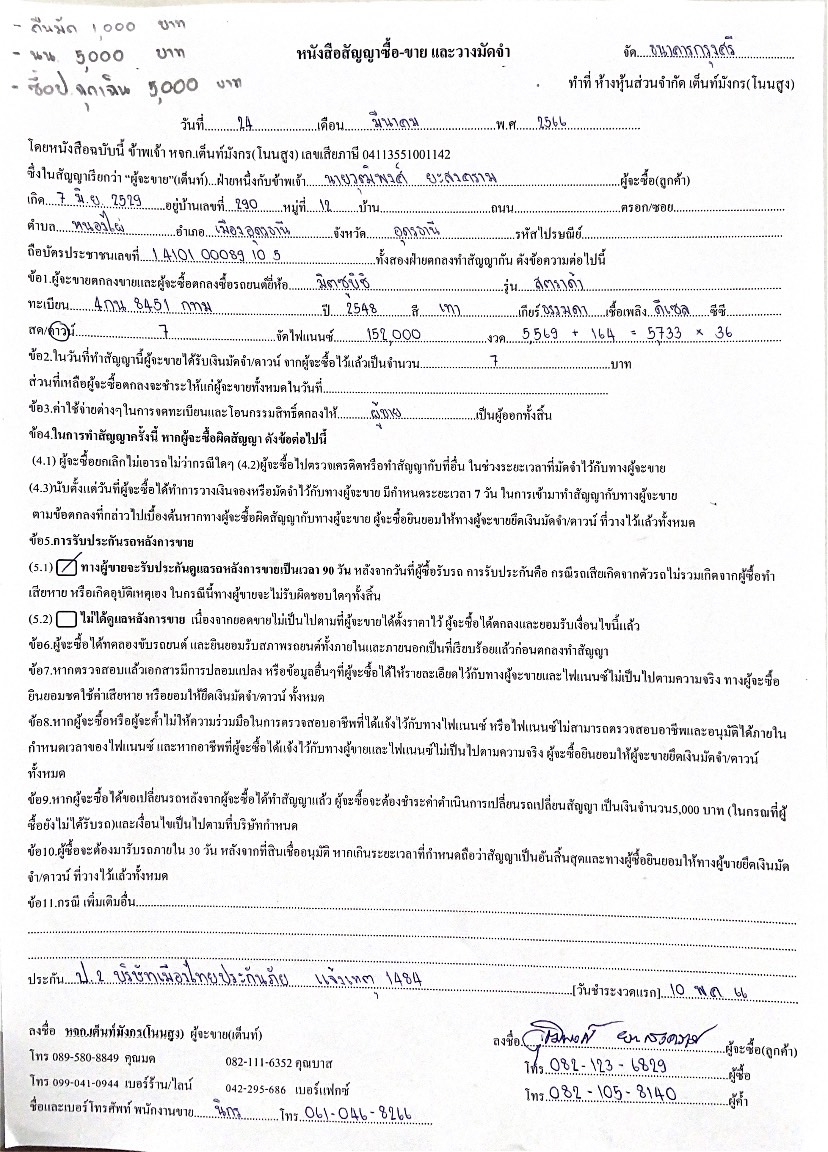 - คืนมัด 1,000 บาท
- นน 5,000 บาท
- ช็อป ฉุกเฉิน 5,000 บาท
หนังสือสัญญาซื้อ-ขาย และวางมัดจำ
จัด ธนาคารกรุงศรี
ทำที่ ห้างหุ้นส่วนจำกัด เต็นท์มังกร(โนนสูง)
วันที่ 24 เดือน มีนาคม พ.ศ. 2566
โดยหนังสือฉบับนี้ ข้าพเจ้า หจก.เต็นท์มังกร(โนนสูง) เลขเสียภาษี 04113551001142
ซึ่งในสัญญาเรียกว่า "ผู้จะขาย"(เต็นท์)...ฝ่ายหนึ่งกับข้าพเจ้า นายวุฒิพงศ์ ยะสงคราม ผู้จะซื้อ(ลูกค้า)
เกิด 7 มิ.ย. 2529 อยู่บ้านเลขที่ 290 หมู่ที่ 12 บ้าน ถนน ตรอก/ซอย
ตำบล หนองไผ่ อำเภอ เมืองอุดรธานี จังหวัด อุดรธานี รหัสไปรษณีย์
ถือบัตรประชาชนเลขที่ 1 4101 00089 10 5 ทั้งสองฝ่ายตกลงทำสัญญากัน ดังข้อความต่อไปนี้
ข้อ1.ผู้จะขายตกลงขายและผู้จะซื้อตกลงซื้อรถยนต์ยี่ห้อ มิตซูบิชิ รุ่น สตราด้า
ทะเบียน 4กน 8451 กทม ปี 2548 สี เทา เกียร์ ธรรมดา เชื้อเพลิง ดีเซล ซีซี
สด/ดาวน์ 7 จัดไฟแนนซ์ 152,000 งวด 5,569 + 164 = 5,733 × 36
ข้อ2.ในวันที่ทำสัญญานี้ผู้จะขายได้รับเงินมัดจำ/ดาวน์ จากผู้จะซื้อไว้แล้วเป็นจำนวน 7 บาท
ส่วนที่เหลือผู้จะซื้อตกลงจะชำระให้แก่ผู้จะขายทั้งหมดในวันที่
ข้อ3.ค่าใช้จ่ายต่างๆในการจดทะเบียนและโอนกรรมสิทธิ์ตกลงให้ ผู้ขาย เป็นผู้ออกทั้งสิ้น
ข้อ4.ในการทำสัญญาครั้งนี้ หากผู้จะซื้อผิดสัญญา ดังข้อต่อไปนี้
(4.1) ผู้จะซื้อยกเลิกไม่เอารถไม่ว่ากรณีใดๆ (4.2)ผู้จะซื้อไปตรวจเครดิตหรือทำสัญญากับที่อื่น ในช่วงระยะเวลาที่มัดจำไว้กับทางผู้จะขาย
(4.3)นับตั้งแต่วันที่ผู้จะซื้อได้ทำการวางเงินจองหรือมัดจำไว้กับทางผู้จะขาย มีกำหนดระยะเวลา 7 วัน ในการเข้ามาทำสัญญากับทางผู้จะขาย
ตามข้อตกลงที่กล่าวไปเบื้องต้นหากทางผู้จะซื้อผิดสัญญากับทางผู้จะขาย ผู้จะซื้อยินยอมให้ทางผู้จะขายยึดเงินมัดจำ/ดาวน์ ที่วางไว้แล้วทั้งหมด
ข้อ5.การรับประกันรถหลังการขาย
(5.1) ทางผู้ขายจะรับประกันดูแลรถหลังการขายเป็นเวลา 90 วัน หลังจากวันที่ผู้ซื้อรับรถ การรับประกันคือ กรณีรถเสียเกิดจากตัวรถไม่รวมเกิดจากผู้ซื้อทำ
เสียหาย หรือเกิดอุบัติเหตุเอง ในกรณีนี้ทางผู้ขายจะไม่รับผิดชอบใดๆทั้งสิ้น
(5.2) ไม่ได้ดูแลหลังการขาย เนื่องจากยอดขายไม่เป็นไปตามที่ผู้จะขายได้ตั้งราคาไว้ ผู้จะซื้อได้ตกลงและยอมรับเงื่อนไขนี้แล้ว
ข้อ6.ผู้จะซื้อได้ทดลองขับรถยนต์ และยินยอมรับสภาพรถยนต์ทั้งภายในและภายนอกเป็นที่เรียบร้อยแล้วก่อนตกลงทำสัญญา
ข้อ7.หากตรวจสอบแล้วเอกสารมีการปลอมแปลง หรือข้อมูลอื่นๆที่ผู้จะซื้อได้ให้รายละเอียดไว้กับทางผู้จะขายและไฟแนนซ์ไม่เป็นไปตามความจริง ทางผู้จะซื้อ
ยินยอมชดใช้ค่าเสียหาย หรือยอมให้ยึดเงินมัดจำ/ดาวน์ ทั้งหมด
ข้อ8.หากผู้จะซื้อหรือผู้จะค้ำไม่ให้ความร่วมมือในการตรวจสอบอาชีพที่ได้แจ้งไว้กับทางไฟแนนซ์ หรือไฟแนนซ์ไม่สามารถตรวจสอบอาชีพและอนุมัติได้ภายใน
กำหนดเวลาของไฟแนนซ์ และหากอาชีพที่ผู้จะซื้อได้แจ้งไว้กับทางผู้ขายและไฟแนนซ์ไม่เป็นไปตามความจริง ผู้จะซื้อยินยอมให้ผู้จะขายยึดเงินมัดจำ/ดาวน์
ทั้งหมด
ข้อ9.หากผู้จะซื้อได้ขอเปลี่ยนรถหลังจากผู้จะซื้อได้ทำสัญญาแล้ว ผู้จะซื้อจะต้องชำระค่าดำเนินการเปลี่ยนรถเปลี่ยนสัญญา เป็นเงินจำนวน5,000 บาท (ในกรณที่ผู้
ซื้อยังไม่ได้รับรถ)และเงื่อนไขเป็นไปตามที่บริษัทกำหนด
ข้อ10.ผู้ซื้อจะต้องมารับรถภายใน 30 วัน หลังจากที่สินเชื่ออนุมัติ หากเกินระยะเวลาที่กำหนดถือว่าสัญญาเป็นอันสิ้นสุดและทางผู้ซื้อยินยอมให้ทางผู้ขายยึดเงินมัด
จำ/ดาวน์ ที่วางไว้แล้วทั้งหมด
ข้อ11.กรณี เพิ่มเติมอื่น
ประกัน ป.2 บริษัทเมืองไทยประกันภัย แจ้งเหตุ 1484 [วันชำระงวดแรก] 10 พค 66
ลงชื่อ หจก.เต็นท์มังกร(โนนสูง) ผู้จะขาย(เต็นท์)
ลงชื่อ วุฒิพงศ์ ยะสงคราม ผู้จะซื้อ(ลูกค้า)
โทร 089-580-8849 คุณมด 082-111-6352 คุณบาส
โทร 082-123-6829 ผู้ซื้อ
โทร 099-041-0944 เบอร์ร้าน/ไลน์ 042-295-686 เบอร์แฟกซ์
โทร 082-105-8140 ผู้ค้ำ
ชื่อและเบอร์โทรศัพท์ พนักงานขาย นิกร โทร 061-046-8266